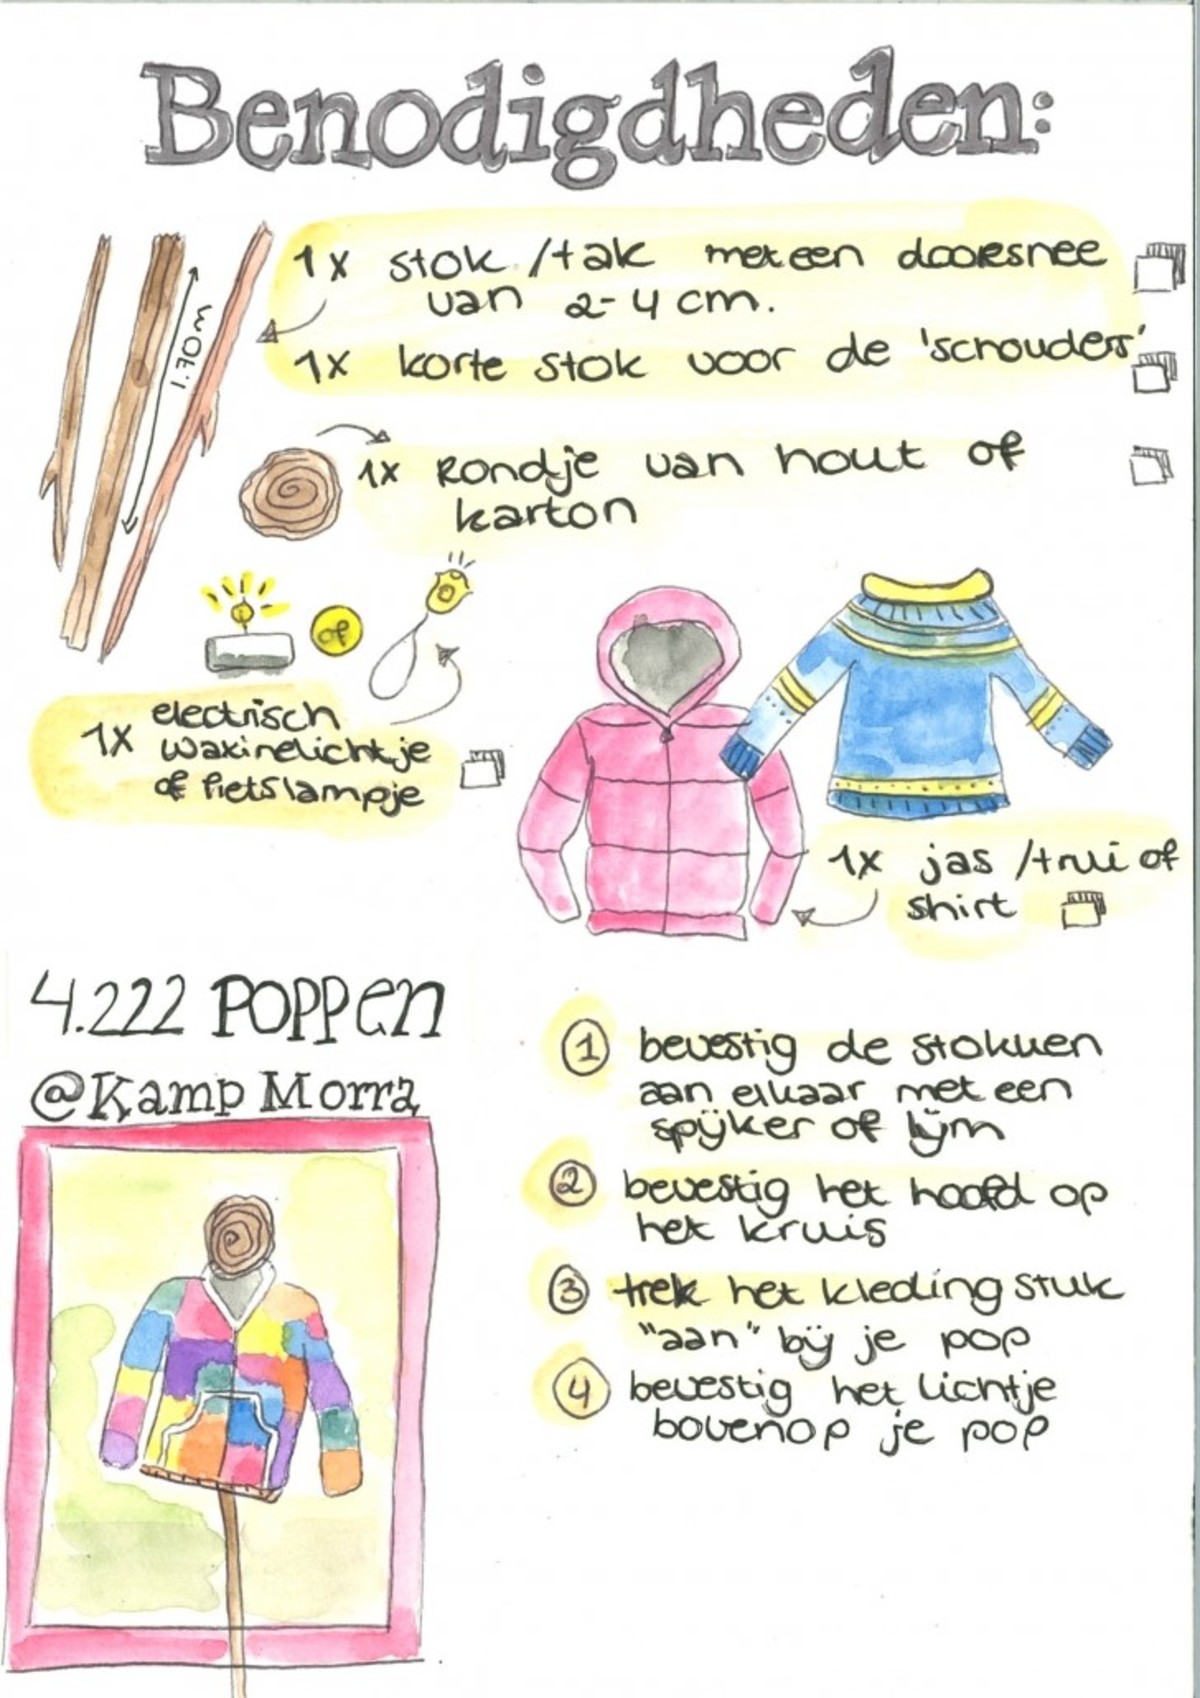 Benodigdheden:
1x stok / tak met een doorsnee
van 2-4 cm.
1.70m
1x korte stok voor de 'schouders'
1x Rondje van hout of
karton
of
1x electrisch
waxinelichtje
of fietslampje
1x jas / trui of
shirt
4.222 POPPEN
@Kamp Morra
1 bevestig de stokken
aan elkaar met een
spijker of lijm
2 bevestig het hoofd op
het kruis
3 trek het kleding stuk
"aan" bij je pop
4 bevestig het lichtje
bovenop je pop